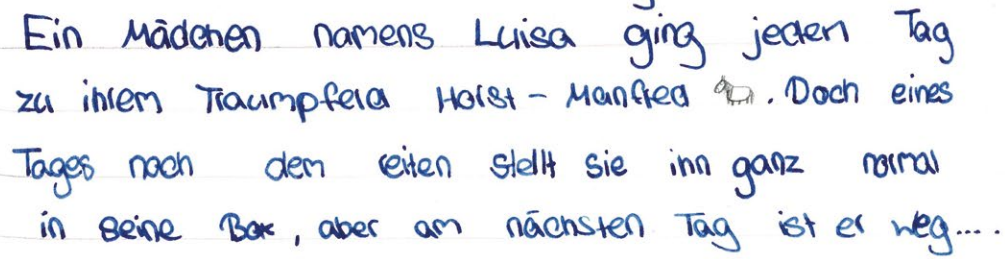 Ein Mädchen namens Luisa ging jeden Tag
zu ihrem Traumpferd Horst - Manfred . Doch eines
Tages nach dem reiten stellt sie ihn ganz normal
in seine Box, aber am nächsten Tag ist er weg....